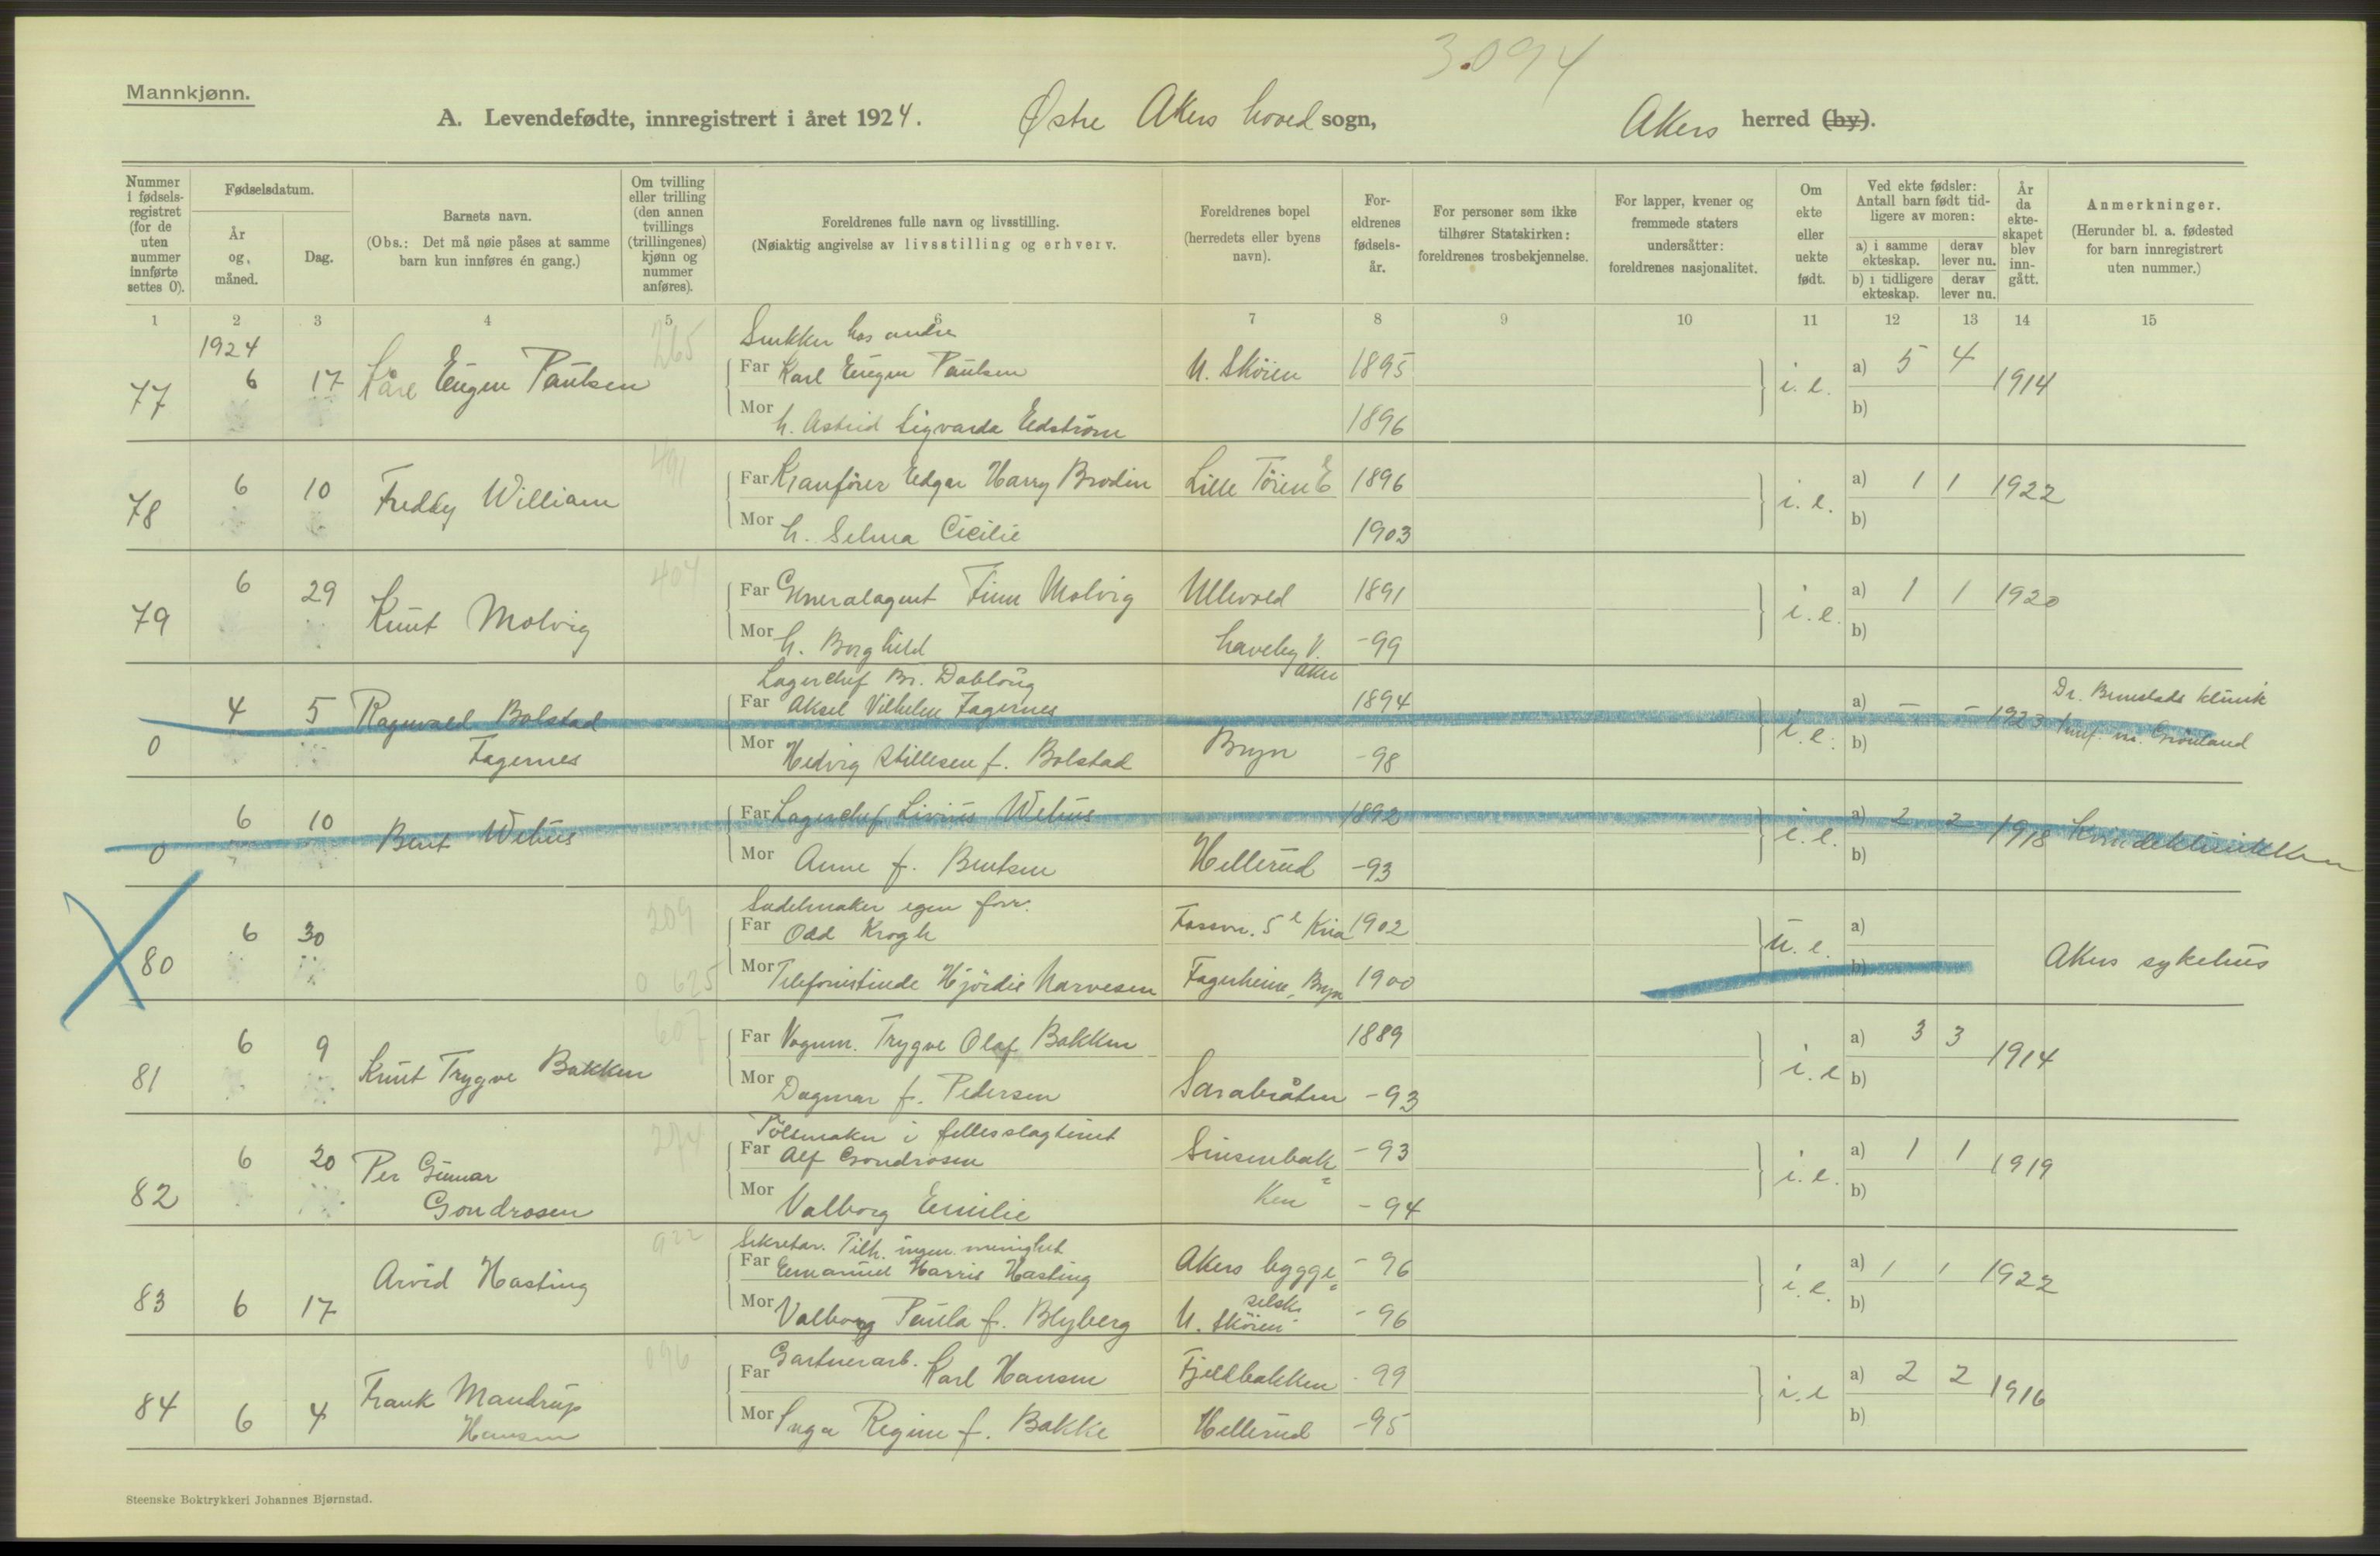 3.094
Mannkjønn.
A. Levendefødte, innregistrert i året 1924. Østre Akers hoved sogn, Akers herred (by).
Nummer i fødsels-registret (for de uten nummer innførte settes 0).
Fødselsdatum.
År og måned.
Dag.
Barnets navn.
(Obs.: Det må nøie påses at samme barn kun innføres én gang.)
Om tvilling eller trilling (den annen tvillings (trillingenes) kjønn og nummer anføres).
Foreldrenes fulle navn og livsstilling.
(Nøiaktig angivelse av livsstilling og erhverv.
Foreldrenes bopel (herredets eller byens navn).
For-eldrenes fødsels-år.
For personer som ikke tilhører Statskirken: foreldrenes trosbekjennelse.
For lapper, kvener og fremmede staters undersåtter: foreldrenes nasjonalitet.
Om ekte eller uekte født.
Ved ekte fødsler: Antall barn født tid-ligere av moren:
a) i samme ekteskap.
derav lever nu.
b) i tidligere ekteskap.
derav lever nu.
År da ekte-skapet blev inn-gått.
Anmerkninger.
(Herunder bl. a. fødested for barn innregistrert uten nummer.)
1 2 3 4 5 6 7 8 9 10 11 12 13 14 15
1924 265 Snekker hos andre
77 6 17 Kåre Eugen Paulsen Far Karl Eugen Paulsen N. Skøien 1895 i. e. a) 5 4 1914
Mor h. Astrid Sigvarda Edstrøm 1896 b)
491
78 6 10 Fredby William Far Kranfører Edgar Harry Brodin Lille Tøien E 1896 i. e. a) 1 1 1922
Mor h. Selma Cicilie 1903 b)
404
79 6 29 Knut Molvig Far Generalagent Finn Molvig Ullevold 1891 i. e. a) 1 1 1920
Mor h. Borghild haveby V. Aker -99 b)
Lagerchef Br. Dobloug
0 4 5 Ragnvald Bolstad Far Aksel Vilhelm Fagernes 1894 i. e. a) - - 1923 Dr. Brunstads klinik
Fagernes Mor Hedvig Stillesen f. Bolstad Bryn -98 b) Grønland
0 6 10 Bent Wehus Far Lagerchef Livius Wehus 1892 i. e. a) 2 2 1918 Kvindeklinikken
Mor Anne f. Bentsen Hellerud -93 b)
209 Sadelmaker egen forr.
80 6 30 Far Odd Krogh Fossvn. 5 Kria 1902 u. e. a)
0 625 Mor Telefonistinde Hjørdis Narvesen Fagerheim, Bryn 1900 b) Akers sykehus
607
81 6 9 Knut Trygve Bakken Far Vognm. Trygve Olaf Bakken 1889 i. e a) 3 3 1914
Mor Dagmar f. Pedersen Sarabråten -93 b)
274 Pølsmaker i fellesslagteriet
82 6 20 Per Gunnar Far Alf Gondrosen Sinsenbak- -93 i. e. a) 1 1 1919
Gondrosen Mor Valborg Emilie ken -94 b)
922 Sekretær. Tilh. ingen menighet
83 6 17 Arvid Hasting Far Emanuel Harris Hasting Akers bygge- -96 i. e. a) 1 1 1922
Mor Valborg Paula f. Blyberg selsk. N. Skøien -96 b)
096
84 6 4 Frank Mandrup Far Gartnerarb. Karl Hansen Fjellbakken -99 i. e a) 2 2 1916
Hansen Mor Inga Regine f. Bakke Hellerud -95 b)
Steenske Boktrykkeri Johannes Bjørnstad.